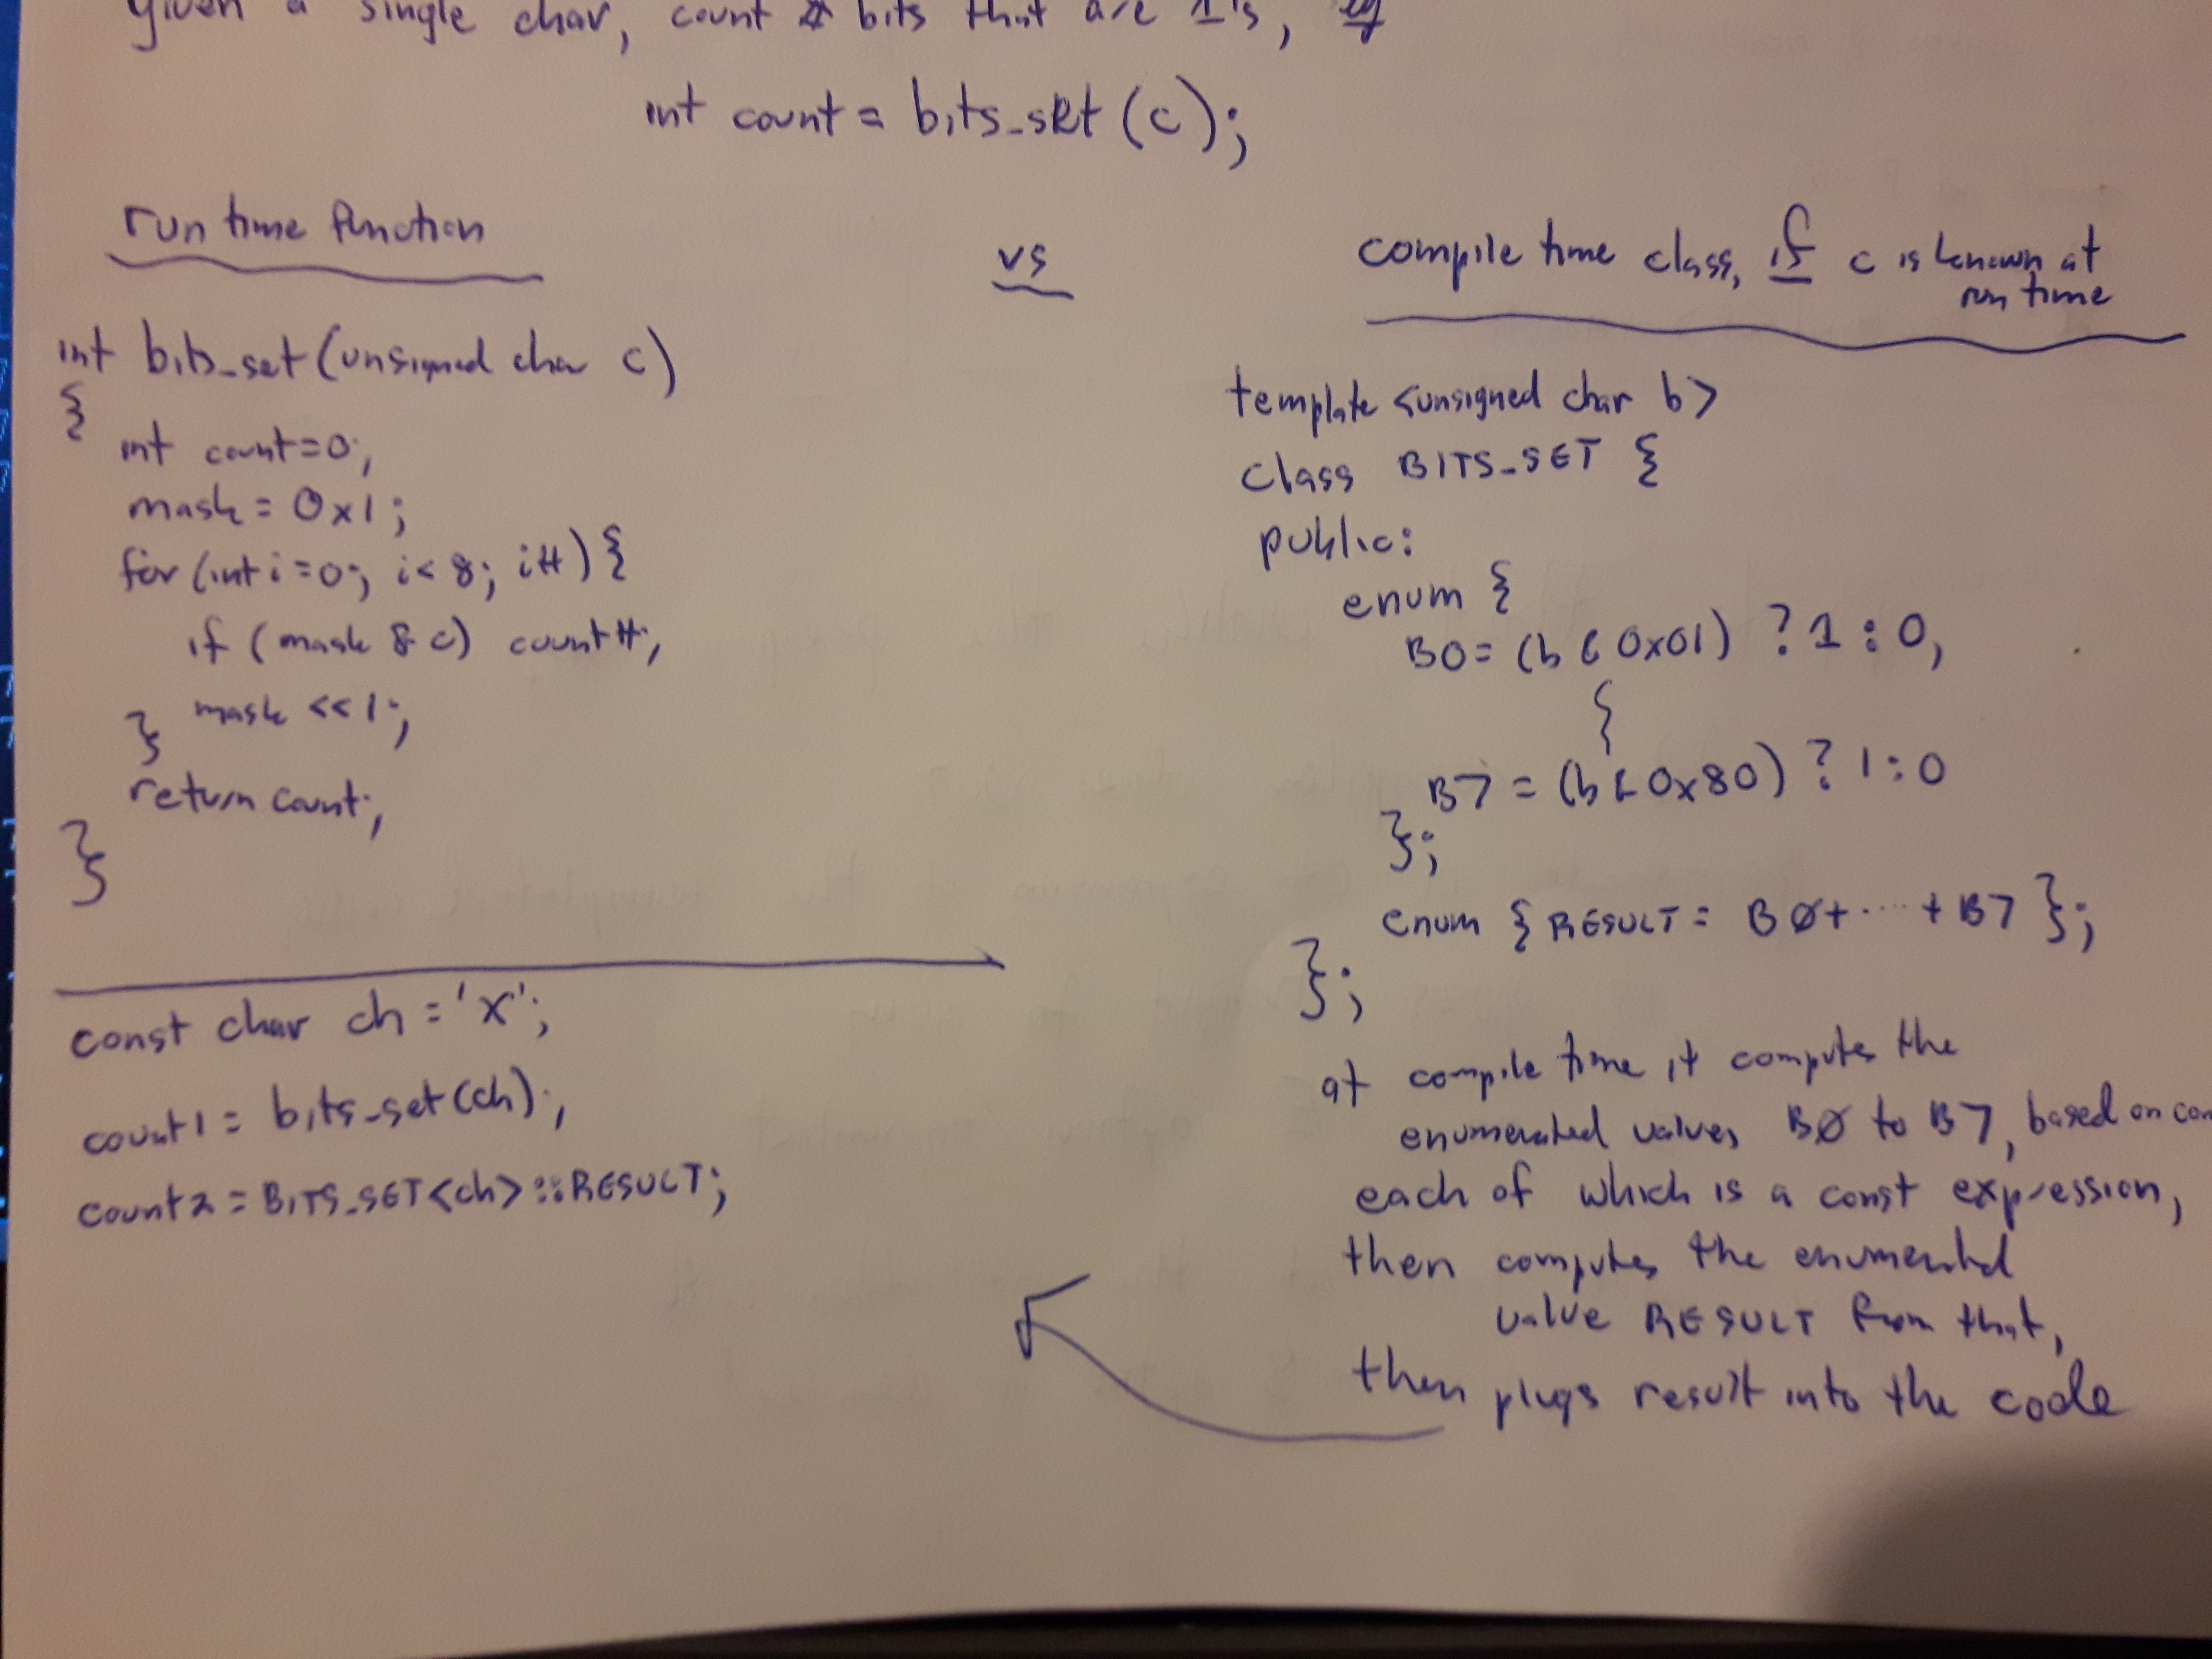 given a single char, count # bits that are 1's, eg
int count = bits_set (c);
run time function
vs
compile time class, if c is known at
run time
int bits_set (unsigned char c)
{
int count=0;
mask = 0x1;
for (int i=0; i<8; i++) {
if (mask & c) count++;
mask <<1;
}
return count;
}
const char ch = 'X';
count1 = bits_set(ch);
count2 = BITS_SET<ch>::RESULT;
template <unsigned char b>
class BITS_SET {
public:
enum {
B0= (b & 0x01) ? 1 : 0,
B7 = (b & 0x80) ? 1:0
};
enum { RESULT= B0+ .... + B7 };
};
at compile time it computes the
enumerated values B0 to B7, based on con
each of which is a const expression,
then computes the enumerated
value RESULT from that,
then plugs result into the code